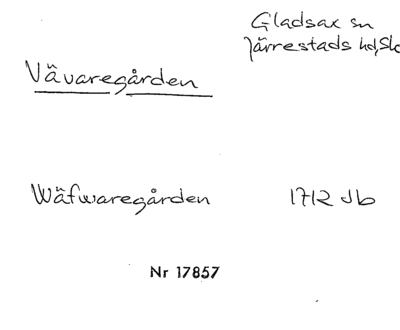 Gladsax sn
Järrestads hd, Sk
Vävaregården
Wäfwaregården 1712 Jb
Nr 17857